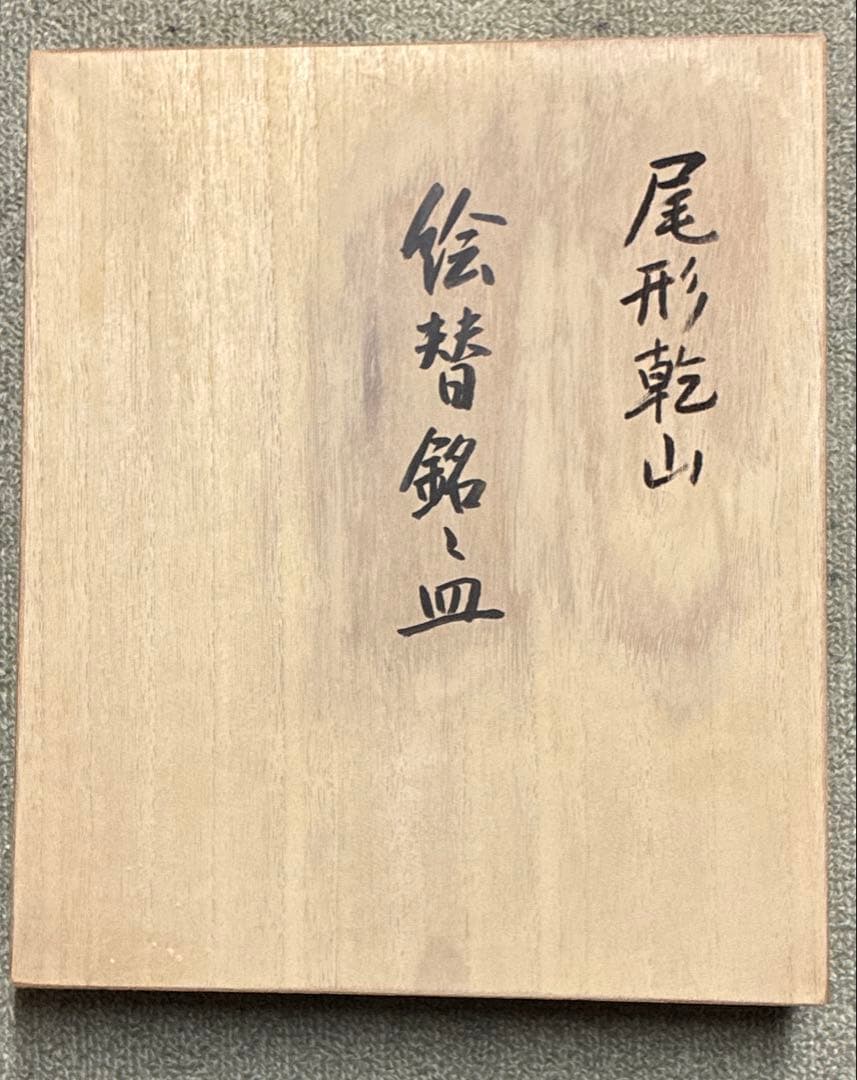 尾形乾山
絵替銘々皿